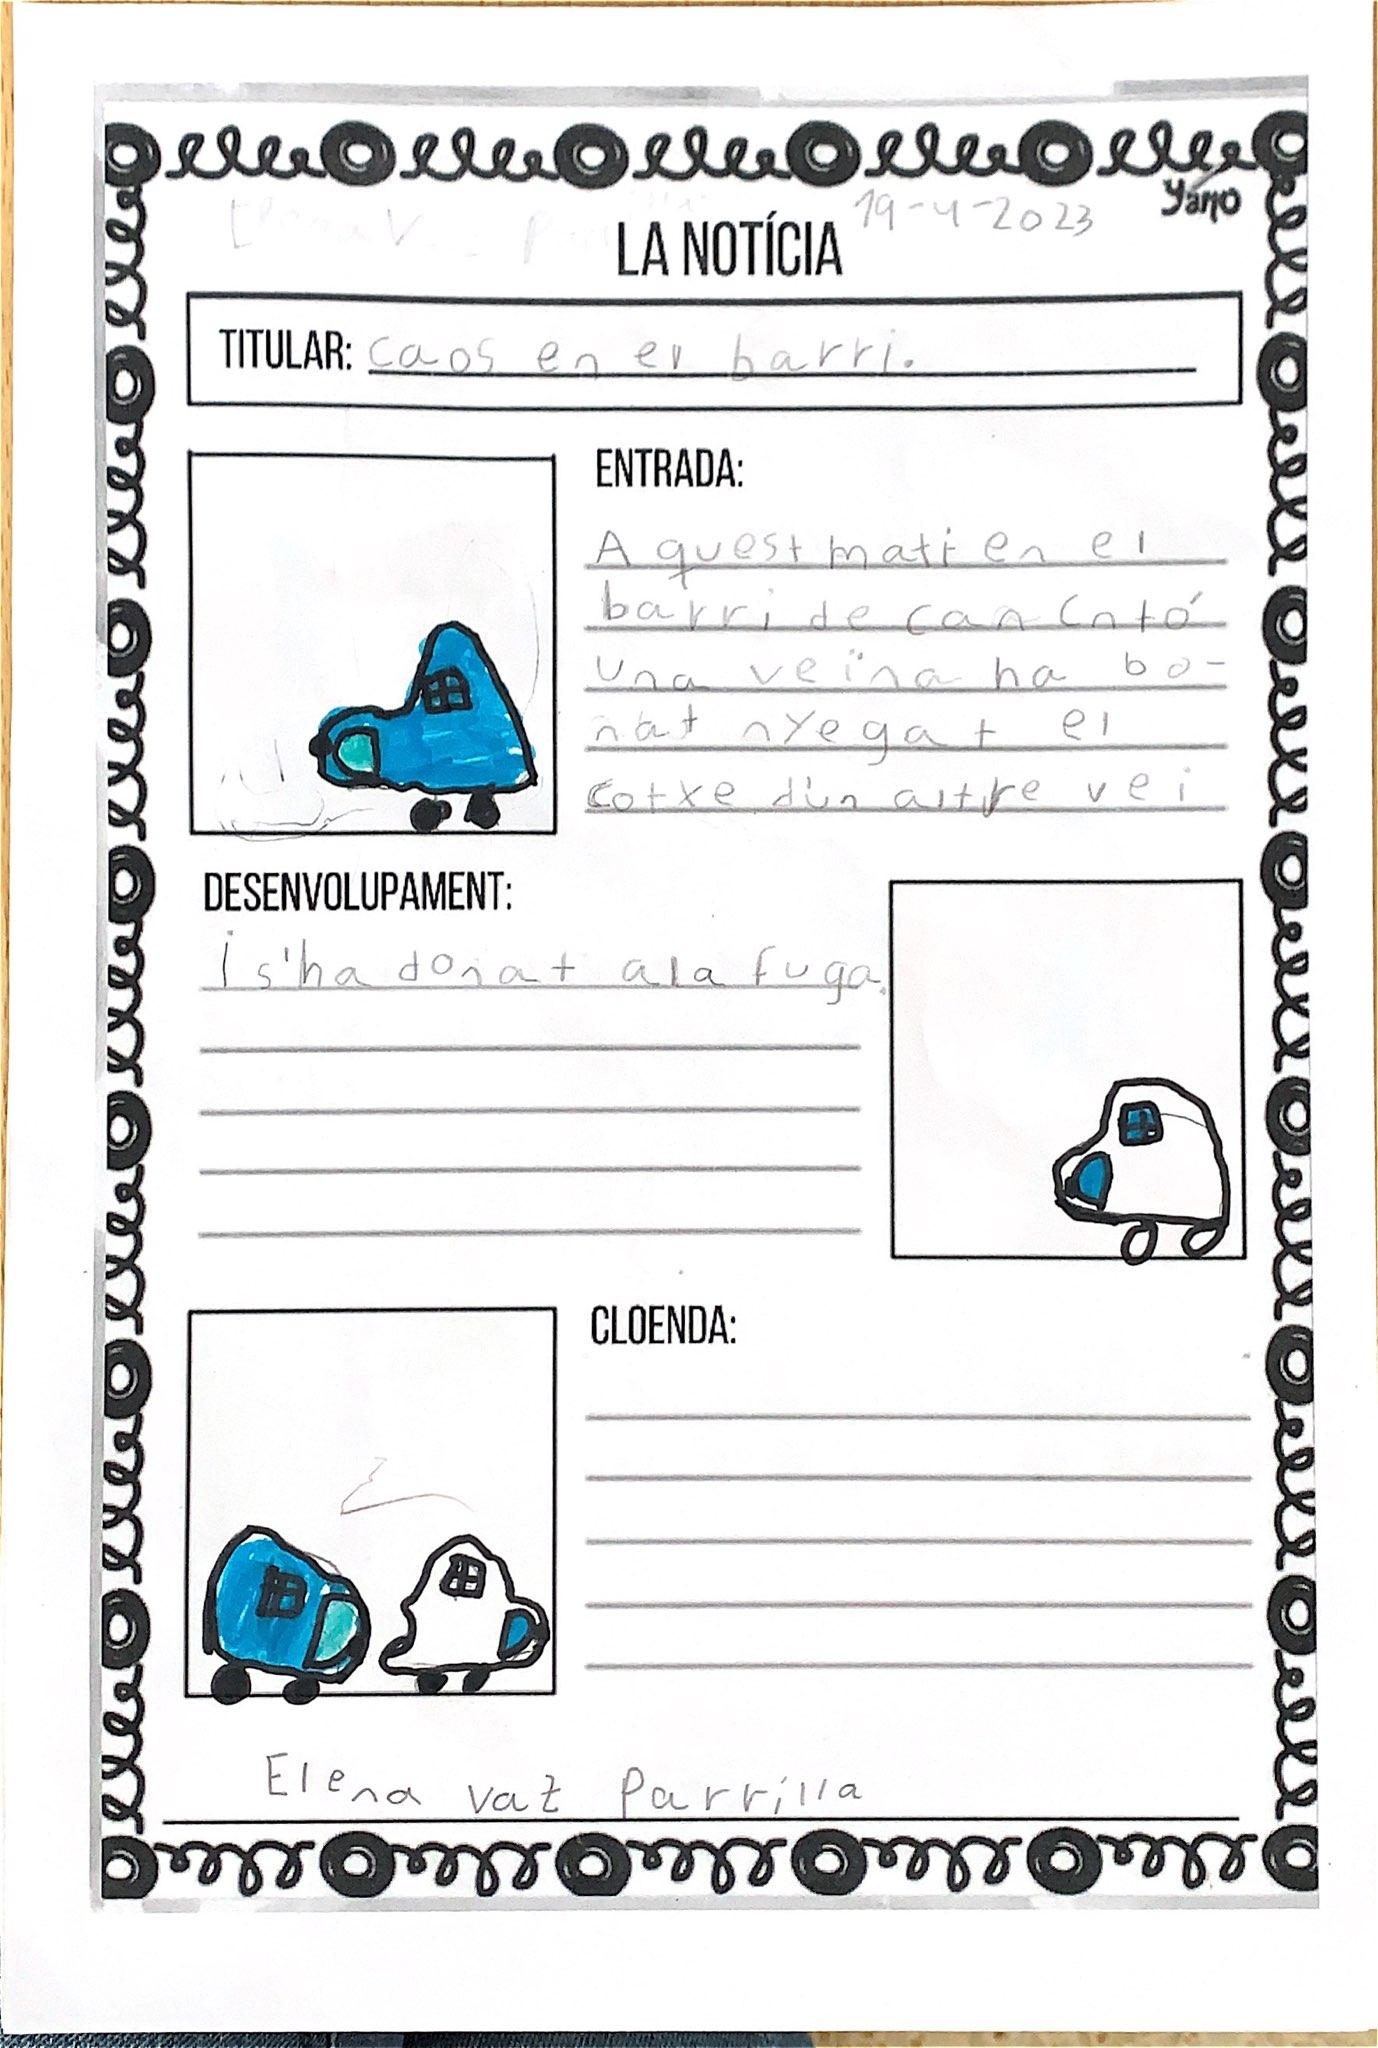 Yano
19-4-2023
LA NOTÍCIA
TITULAR: caos en el barri.
ENTRADA:
Aquest mati en el
barri de can Cntó
una veïna ha bo-
nat nyegat el
cotxe d'un altre vei
DESENVOLUPAMENT:
i s'ha donat a la fuga.
CLOENDA:
Elena vaz Parrilla